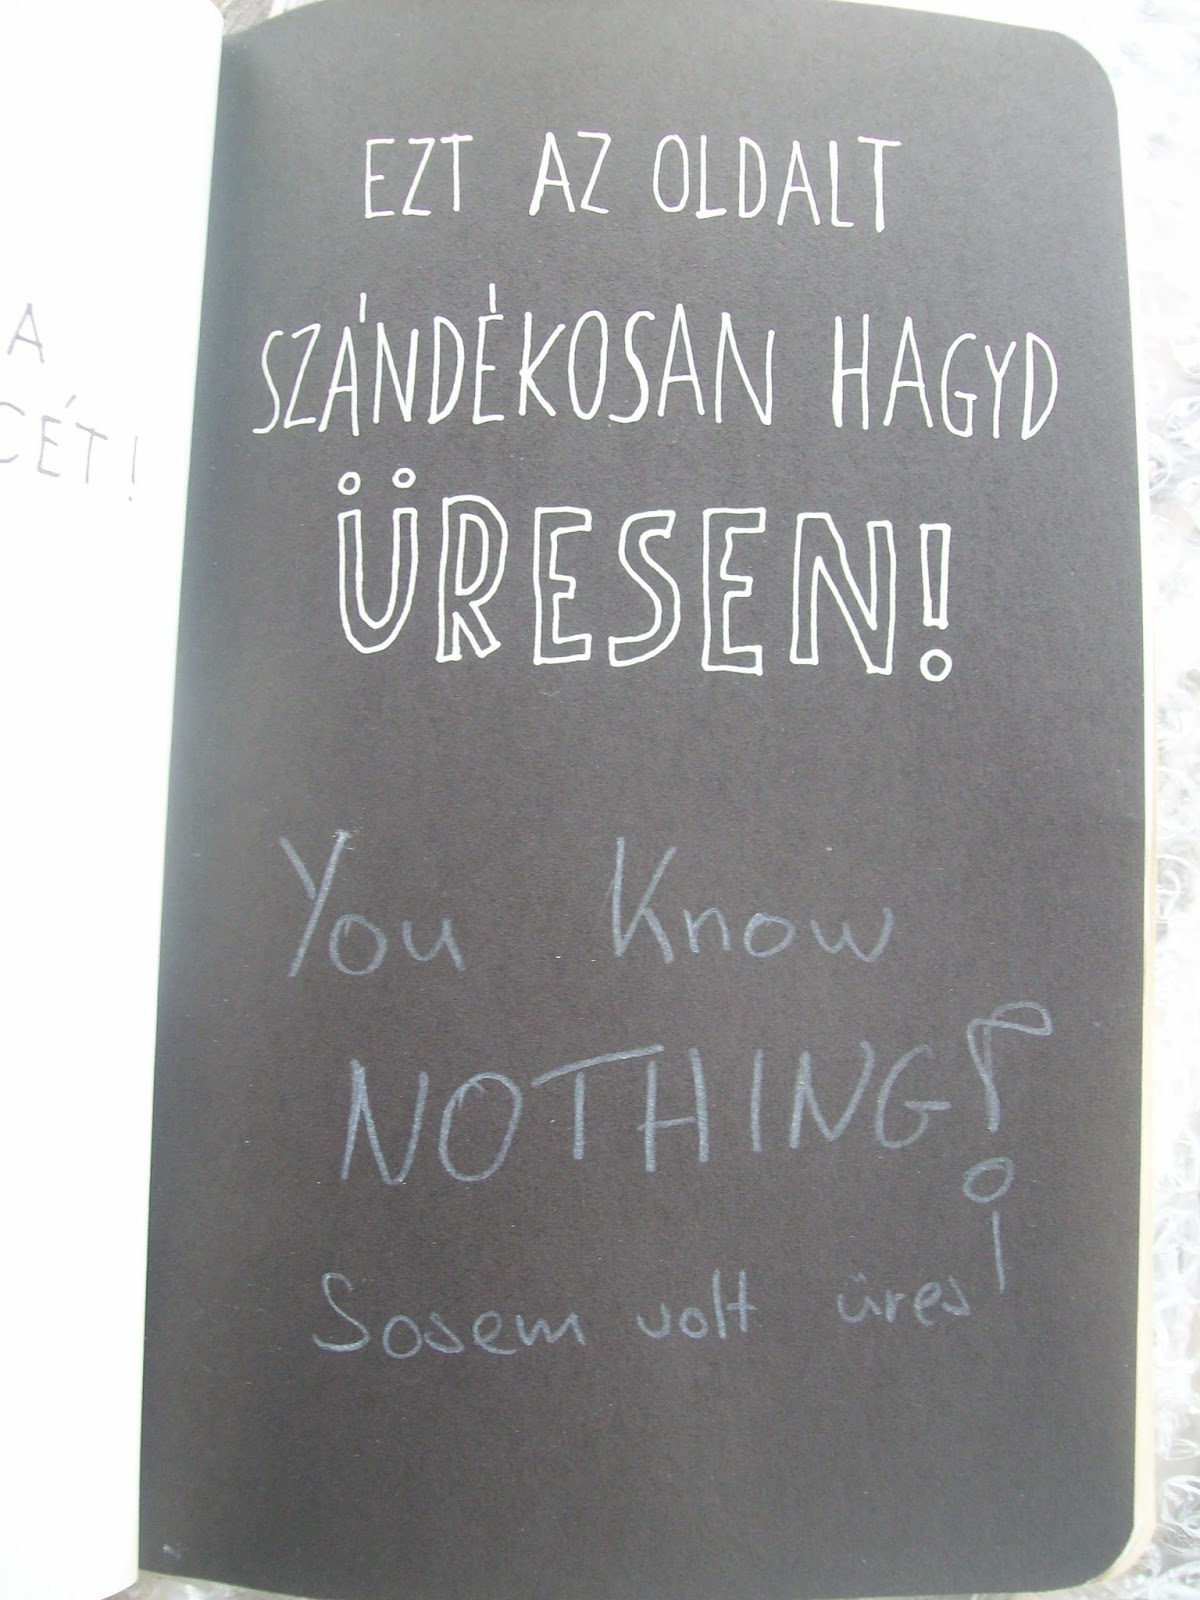 A
CÉT!
EZT AZ OLDALT
SZÁNDÉKOSAN HAGYD
ÜRESEN!
You Know
NOTHING!
Sosem volt üres!